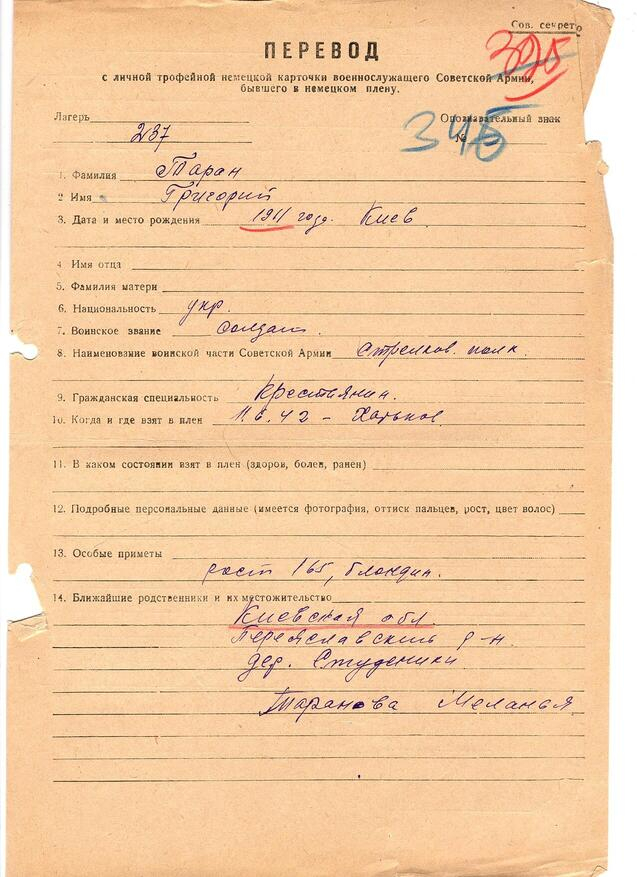 Сов. секретно
395
ПЕРЕВОД
с личной трофейной немецкой карточки военнослужащего Советской Армии,
бывшего в немецком плену.
Лагерь
Опознавательный знак
237
№
346
1. Фамилия Таран
2 Имя Григорий
3. Дата и место рождения 1911 годр. Киев
4 Имя отца
5. Фамилия матери
6. Национальность укр.
7. Воинское звание солдат.
8. Наименование воинской части Советской Армии Стрелков. полк
9. Гражданская специальность Крестьянин.
10. Когда и где взят в плен 11.6.42 - Харьков
11. В каком состоянии взят в плен (здоров, болен, ранен)
12. Подробные персональные данные (имеется фотография, оттиск пальцев, рост, цвет волос)
13. Особые приметы
рост 165, блондин.
14. Ближайшие родственники и их местожительство
Киевская обл.
Переяславский р-н.
дер. Студеники.
Таранова Меланья